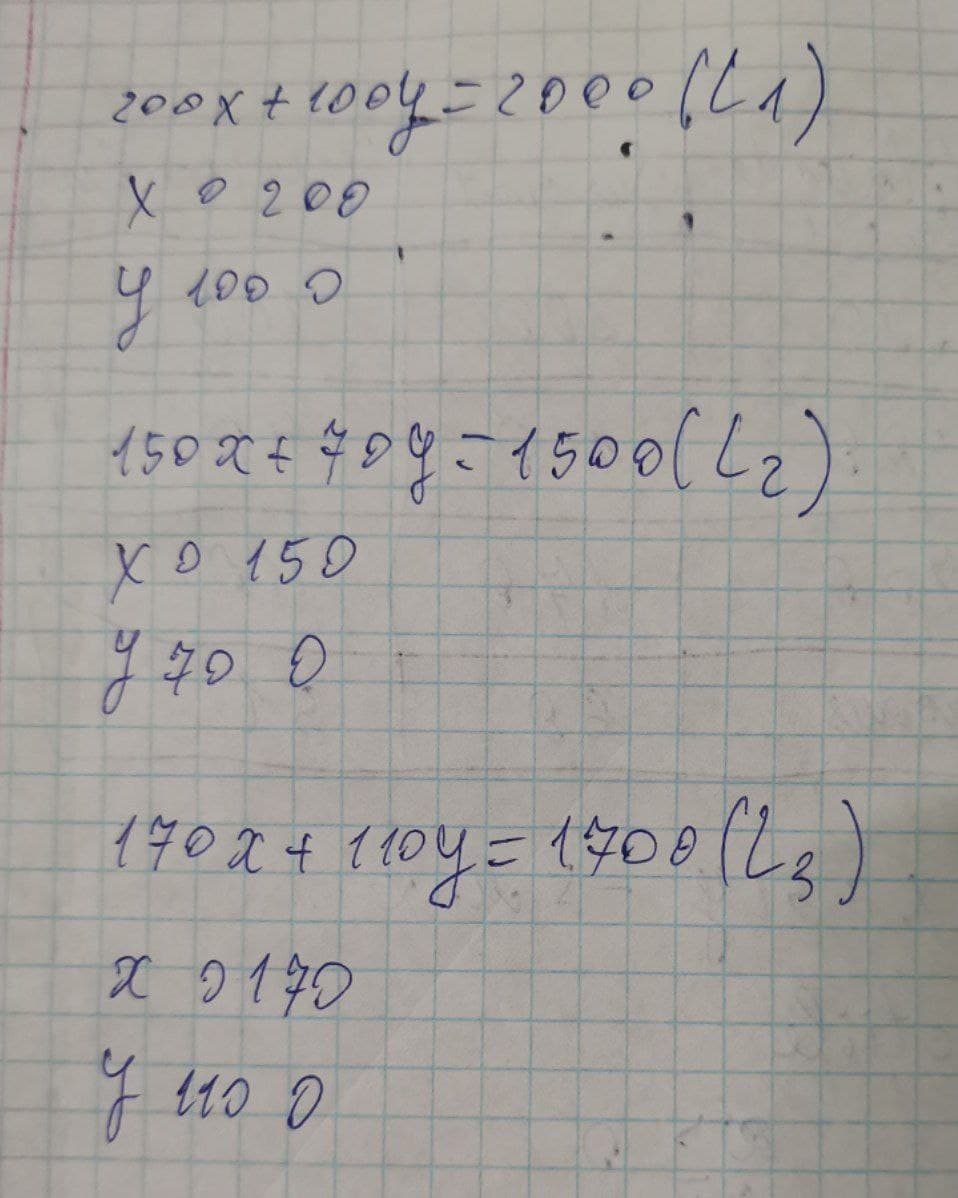 200x+100y=2000(L1)
x 0 200
y 100 0
150x+70y=1500(L2)
x 0 150
y 70 0
170x+110y=1700(L3)
x 0 170
y 110 0